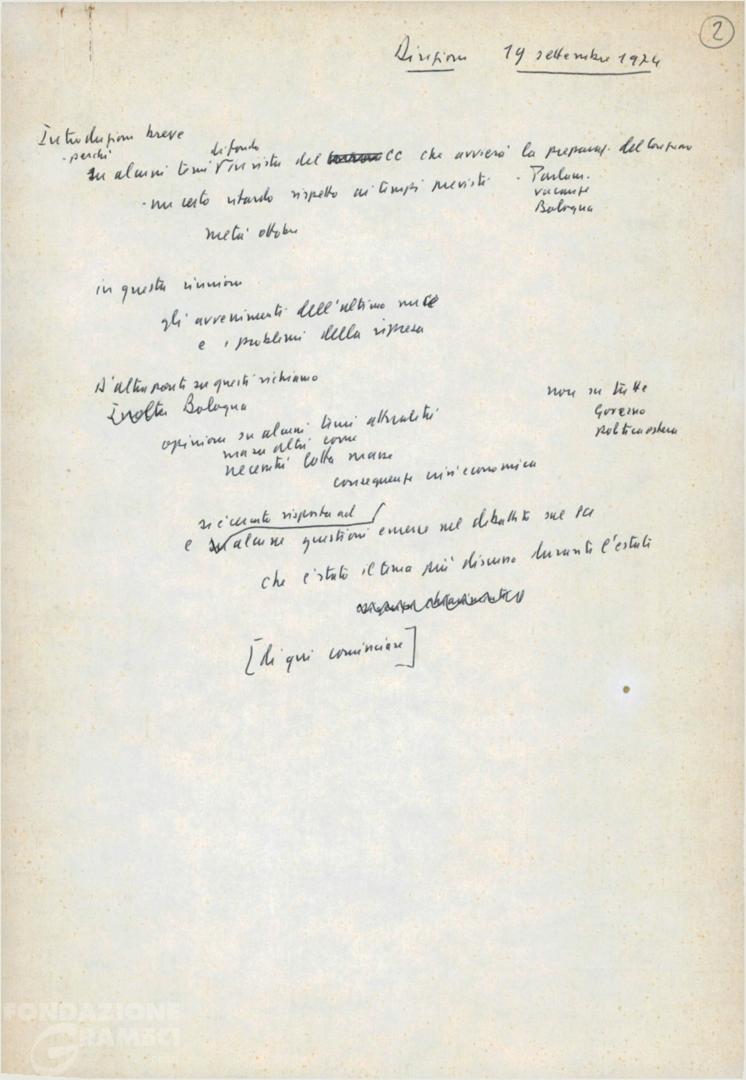 2
Direzione 19 settembre 1974
Introduzione breve
- perché di fondo
su alcuni temi in vista del CC che avvierà la preparaz. del Congresso
- un certo ritardo rispetto ai tempi previsti - Parlam.
vacanze
Bologna
metà ottobre
in questa riunione
gli avvenimenti dell'ultimo mese
e i problemi della ripresa
D'altra parte su questi richiamo
Inoltre Bologna
non su tutte
Governo
politica estera
opinione su alcuni temi attualità
ma su altri come
necessità lotta masse
conseguenze crisi economica
si è cercato risposta ad
e su alcune questioni emerse nel dibattito sul
che è stato il tema più discusso durante l'estate
[di qui cominciare]
FONDAZIONE
GRAMSCI